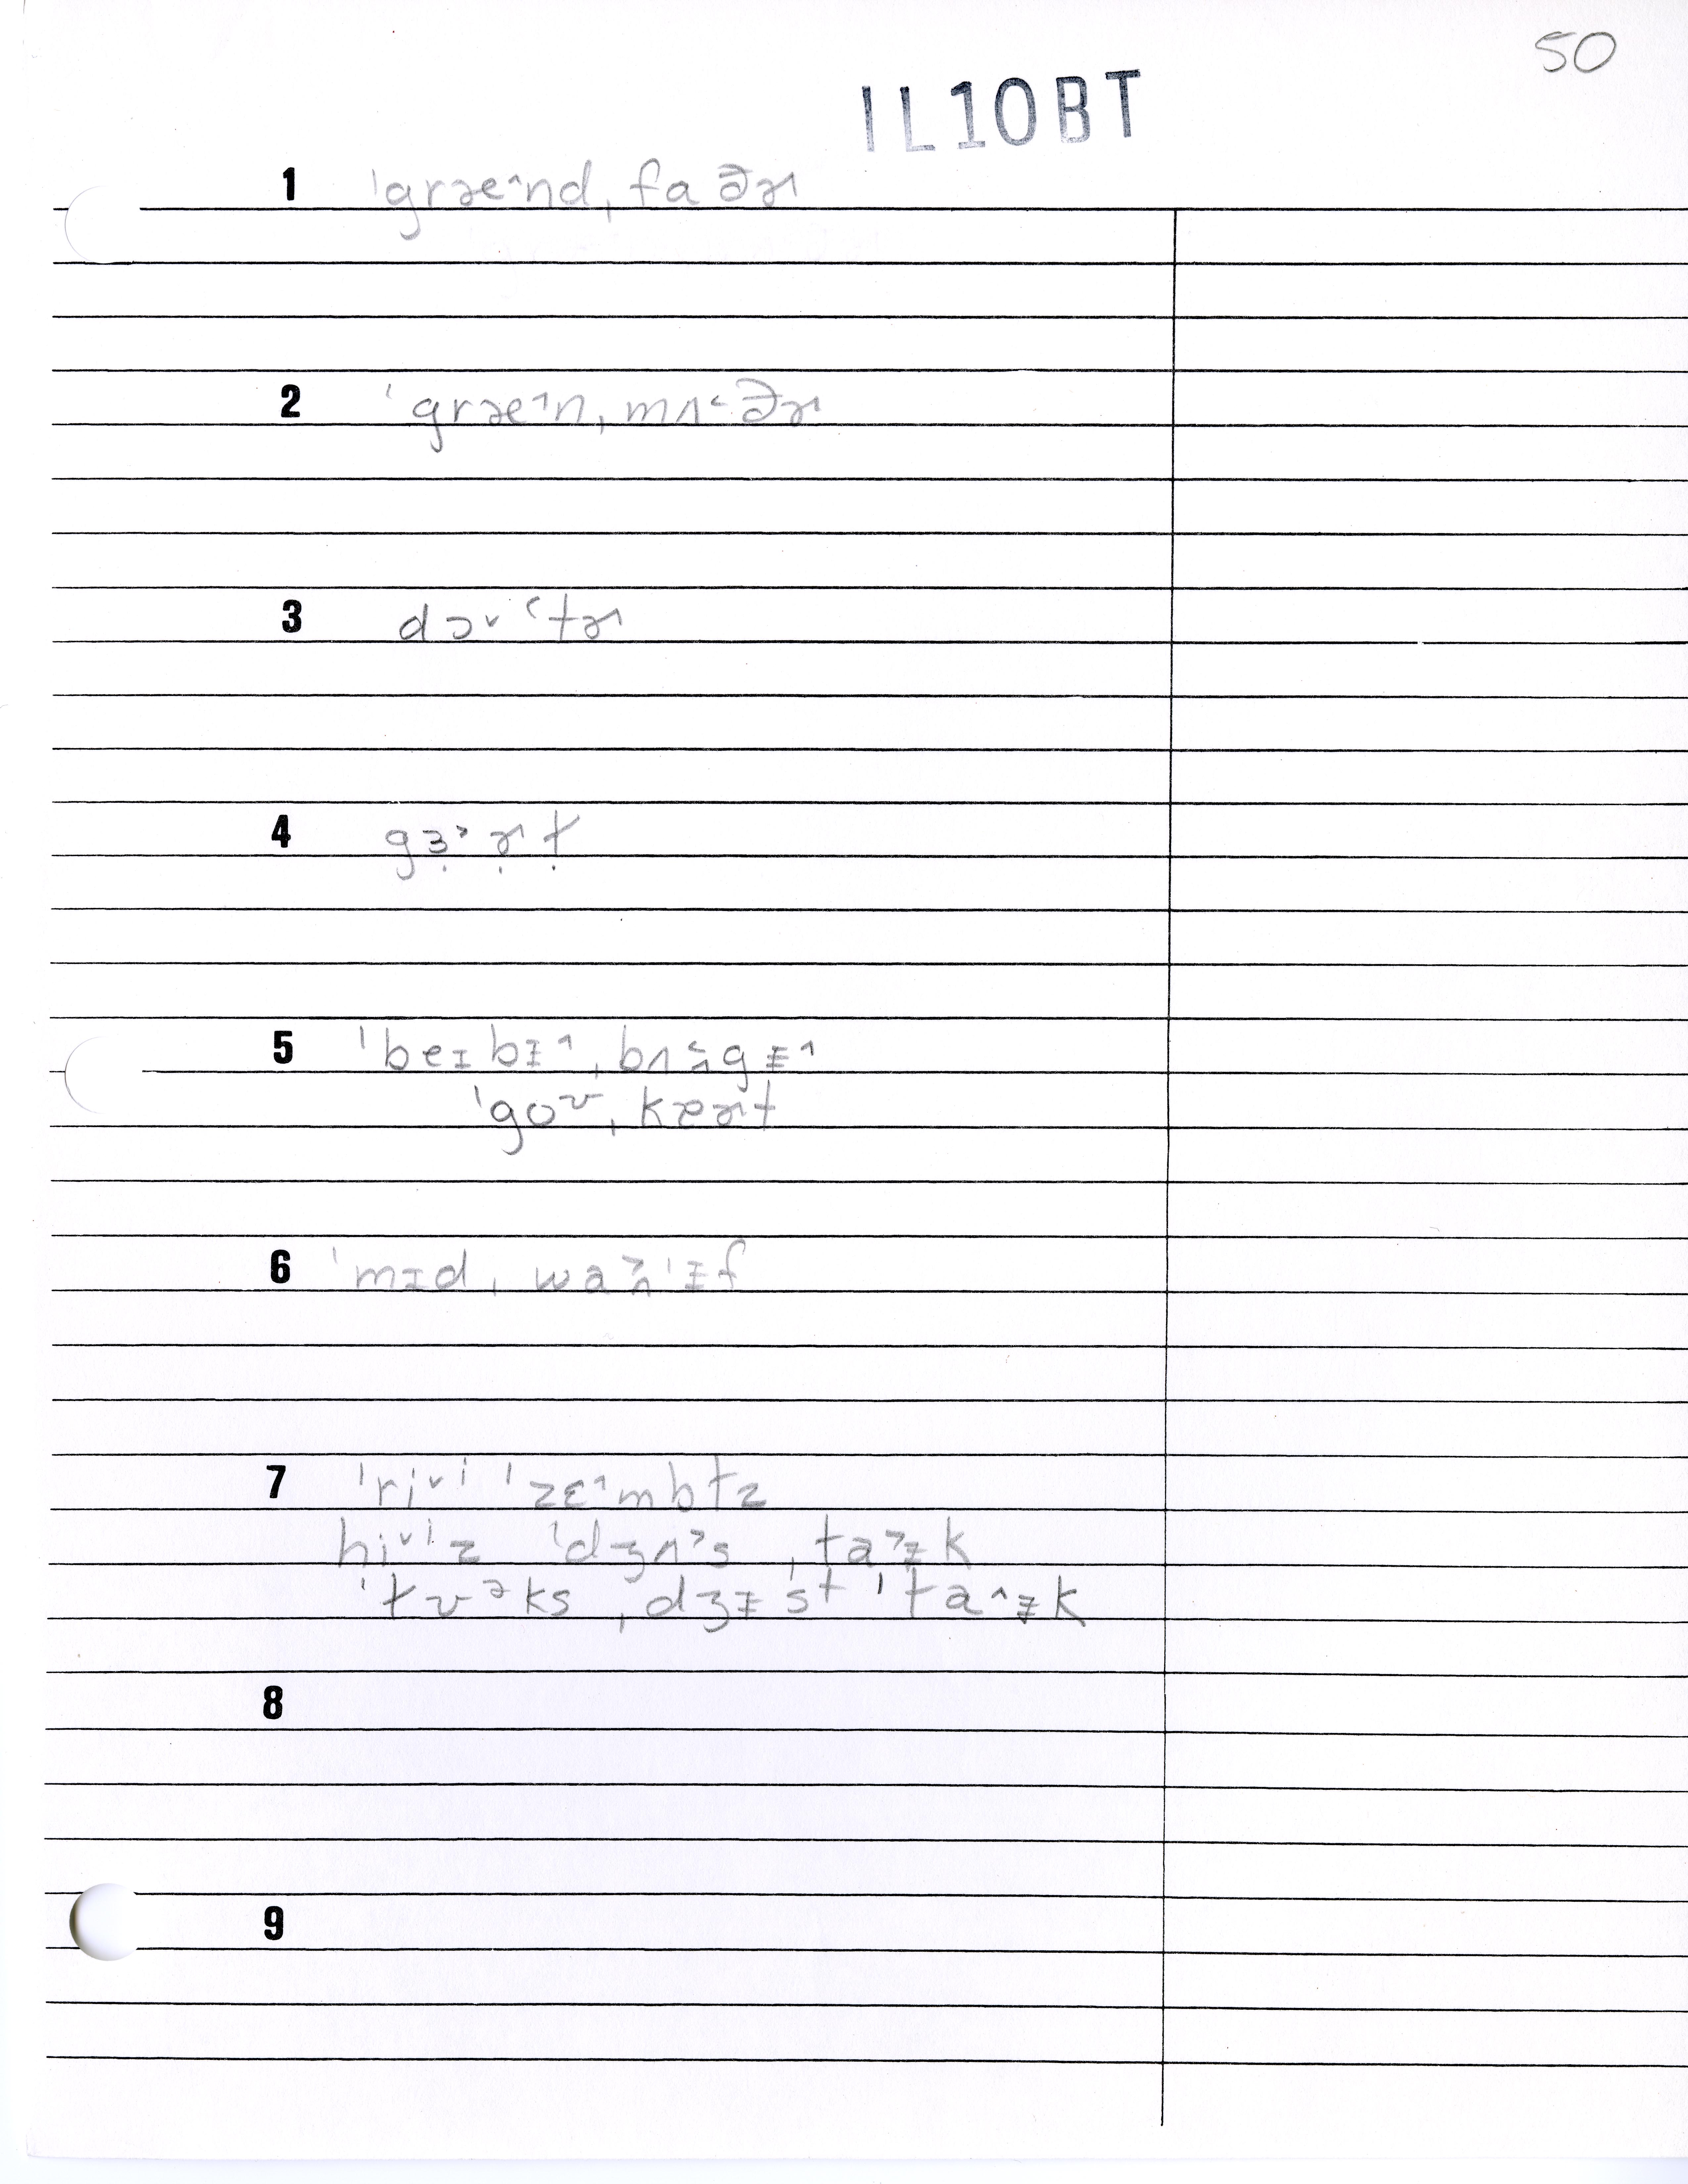 50
IL10BT
1 ˈgræ˄nd ˌfaðɚ
2 ˈgræ˄n ˌmʌ˂ðɚ
3 dɔ˅˂tɚ
4 gɜ̣˃ɚ̣ḷ
5 ˈbeɪbɪ˄ ˌbʌ˂˄gɪ˄
ˈgoʊ ˌkɚt
6 ˈmɪd ˌwa˃˄ˈɪf
7 ˈri˅i ˈzɛ˄mbɫz
hi˅iz ˈdʒʌ˃s ˌɫa˃ɪk
ˈɫʊ˃ks ˌdʒɪst ˈɫa˄ɪk
8
9